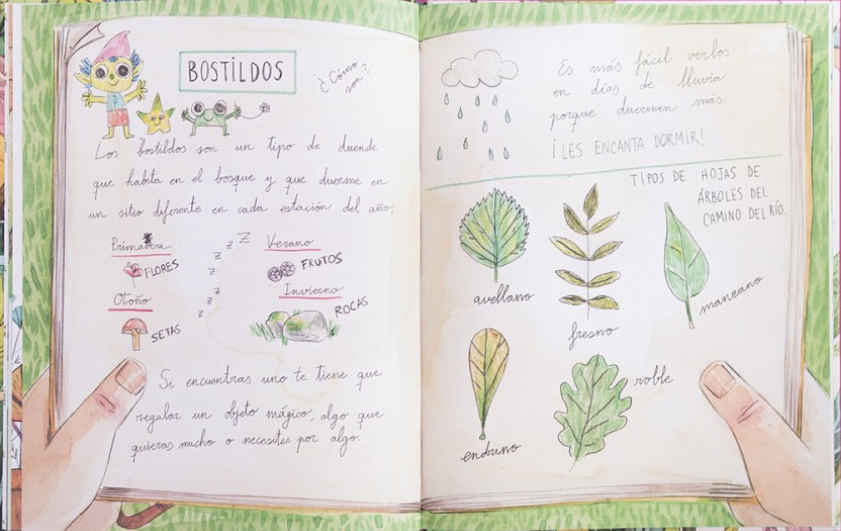 BOSTILDOS
¿Cómo
son?
Los bostildos son un tipo de duende
que habita en el bosque y que duerme en
un sitio diferente en cada estación del año:
Primavera
FLORES
z z z z z z
Verano
FRUTOS
Otoño
SETAS
Invierno
ROCAS
Si encuentras uno te tiene que
regalar un objeto mágico, algo que
quieras mucho o necesites por algo.
Es más fácil verlos
en días de lluvia
porque duermen más.
¡LES ENCANTA DORMIR!
TIPOS DE HOJAS DE
ÁRBOLES DEL
CAMINO DEL RÍO.
avellano
fresno
manzano
endrino
roble